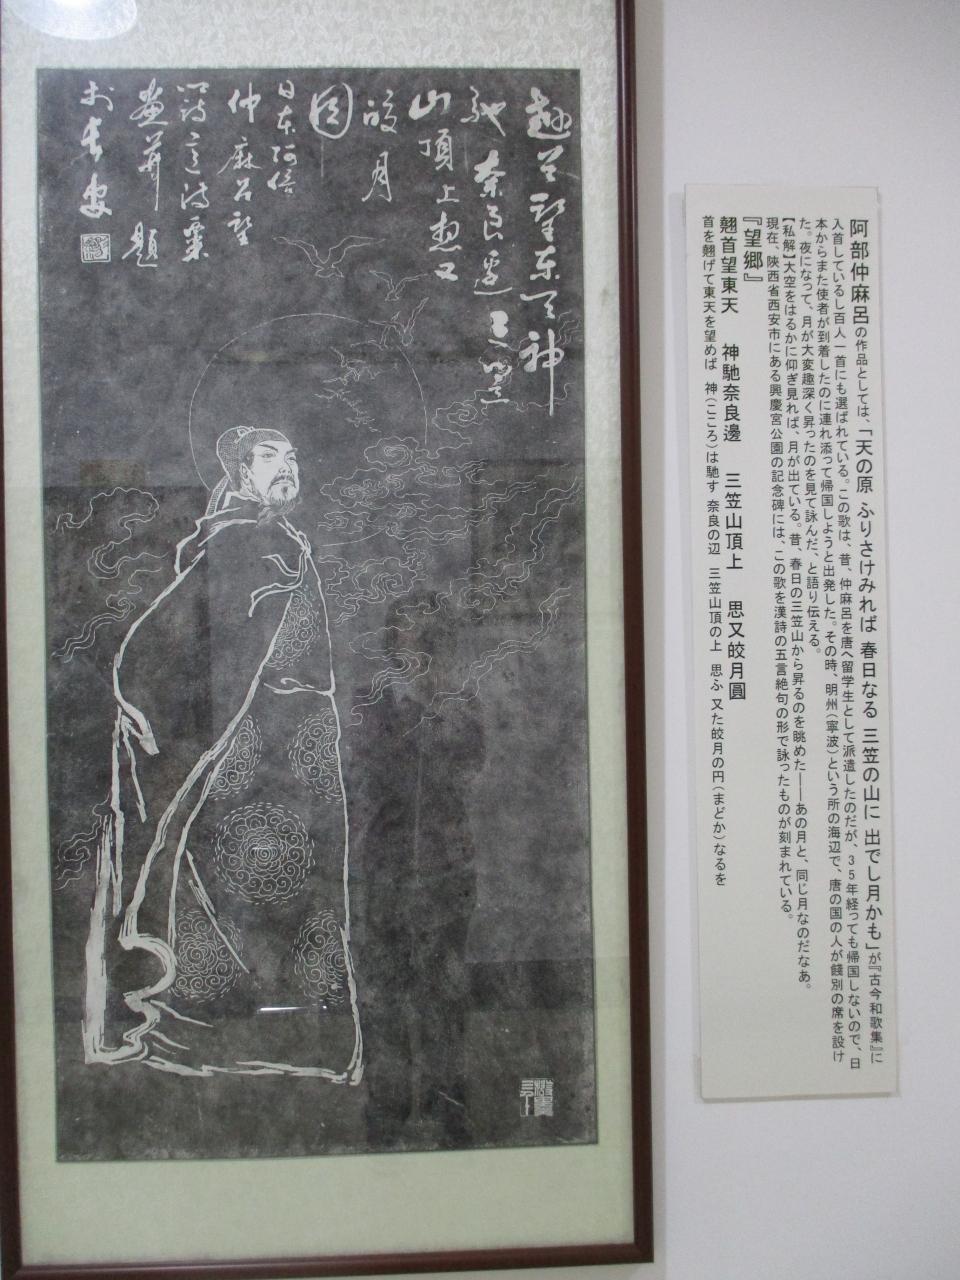 翹首望東天神
馳奈良邊三笠
山頂上思又
皎月
圓
日本阿倍
仲麻呂望
鄉詩意
画并題
於長安
阿部仲麻呂の作品としては、「天の原 ふりさけみれば 春日なる 三笠の山に 出でし月かも」が『古今和歌集』に
入首しているし百人一首にも選ばれている。この歌は、昔、仲麻呂を唐へ留学生として派遣したのだが、35年経っても帰国しないので、日
本からまた使者が到着したのに連れ添って帰国しようと出発した。その時、明州(寧波)という所の海辺で、唐の国の人が餞別の席を設け
た。夜になって、月が大変趣深く昇ったのを見て詠んだ、と語り伝える。
【私解】大空をはるかに仰ぎ見れば、月が出ている。昔、春日の三笠山から昇るのを眺めた――あの月と、同じ月なのだなあ。
現在、陝西省西安市にある興慶宮公園の記念碑には、この歌を漢詩の五言絶句の形で詠ったものが刻まれている。
『望郷』
翹首望東天 神馳奈良邊 三笠山頂上 思又皎月圓
首を翹げて東天を望めば 神(こころ)は馳す 奈良の辺 三笠山頂の上 思ふ 又た皎月の円(まどか)なるを